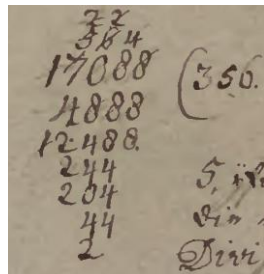 2 2
3 6 4
17088 (350.
4888
12488.
244
204
44
2
Divi